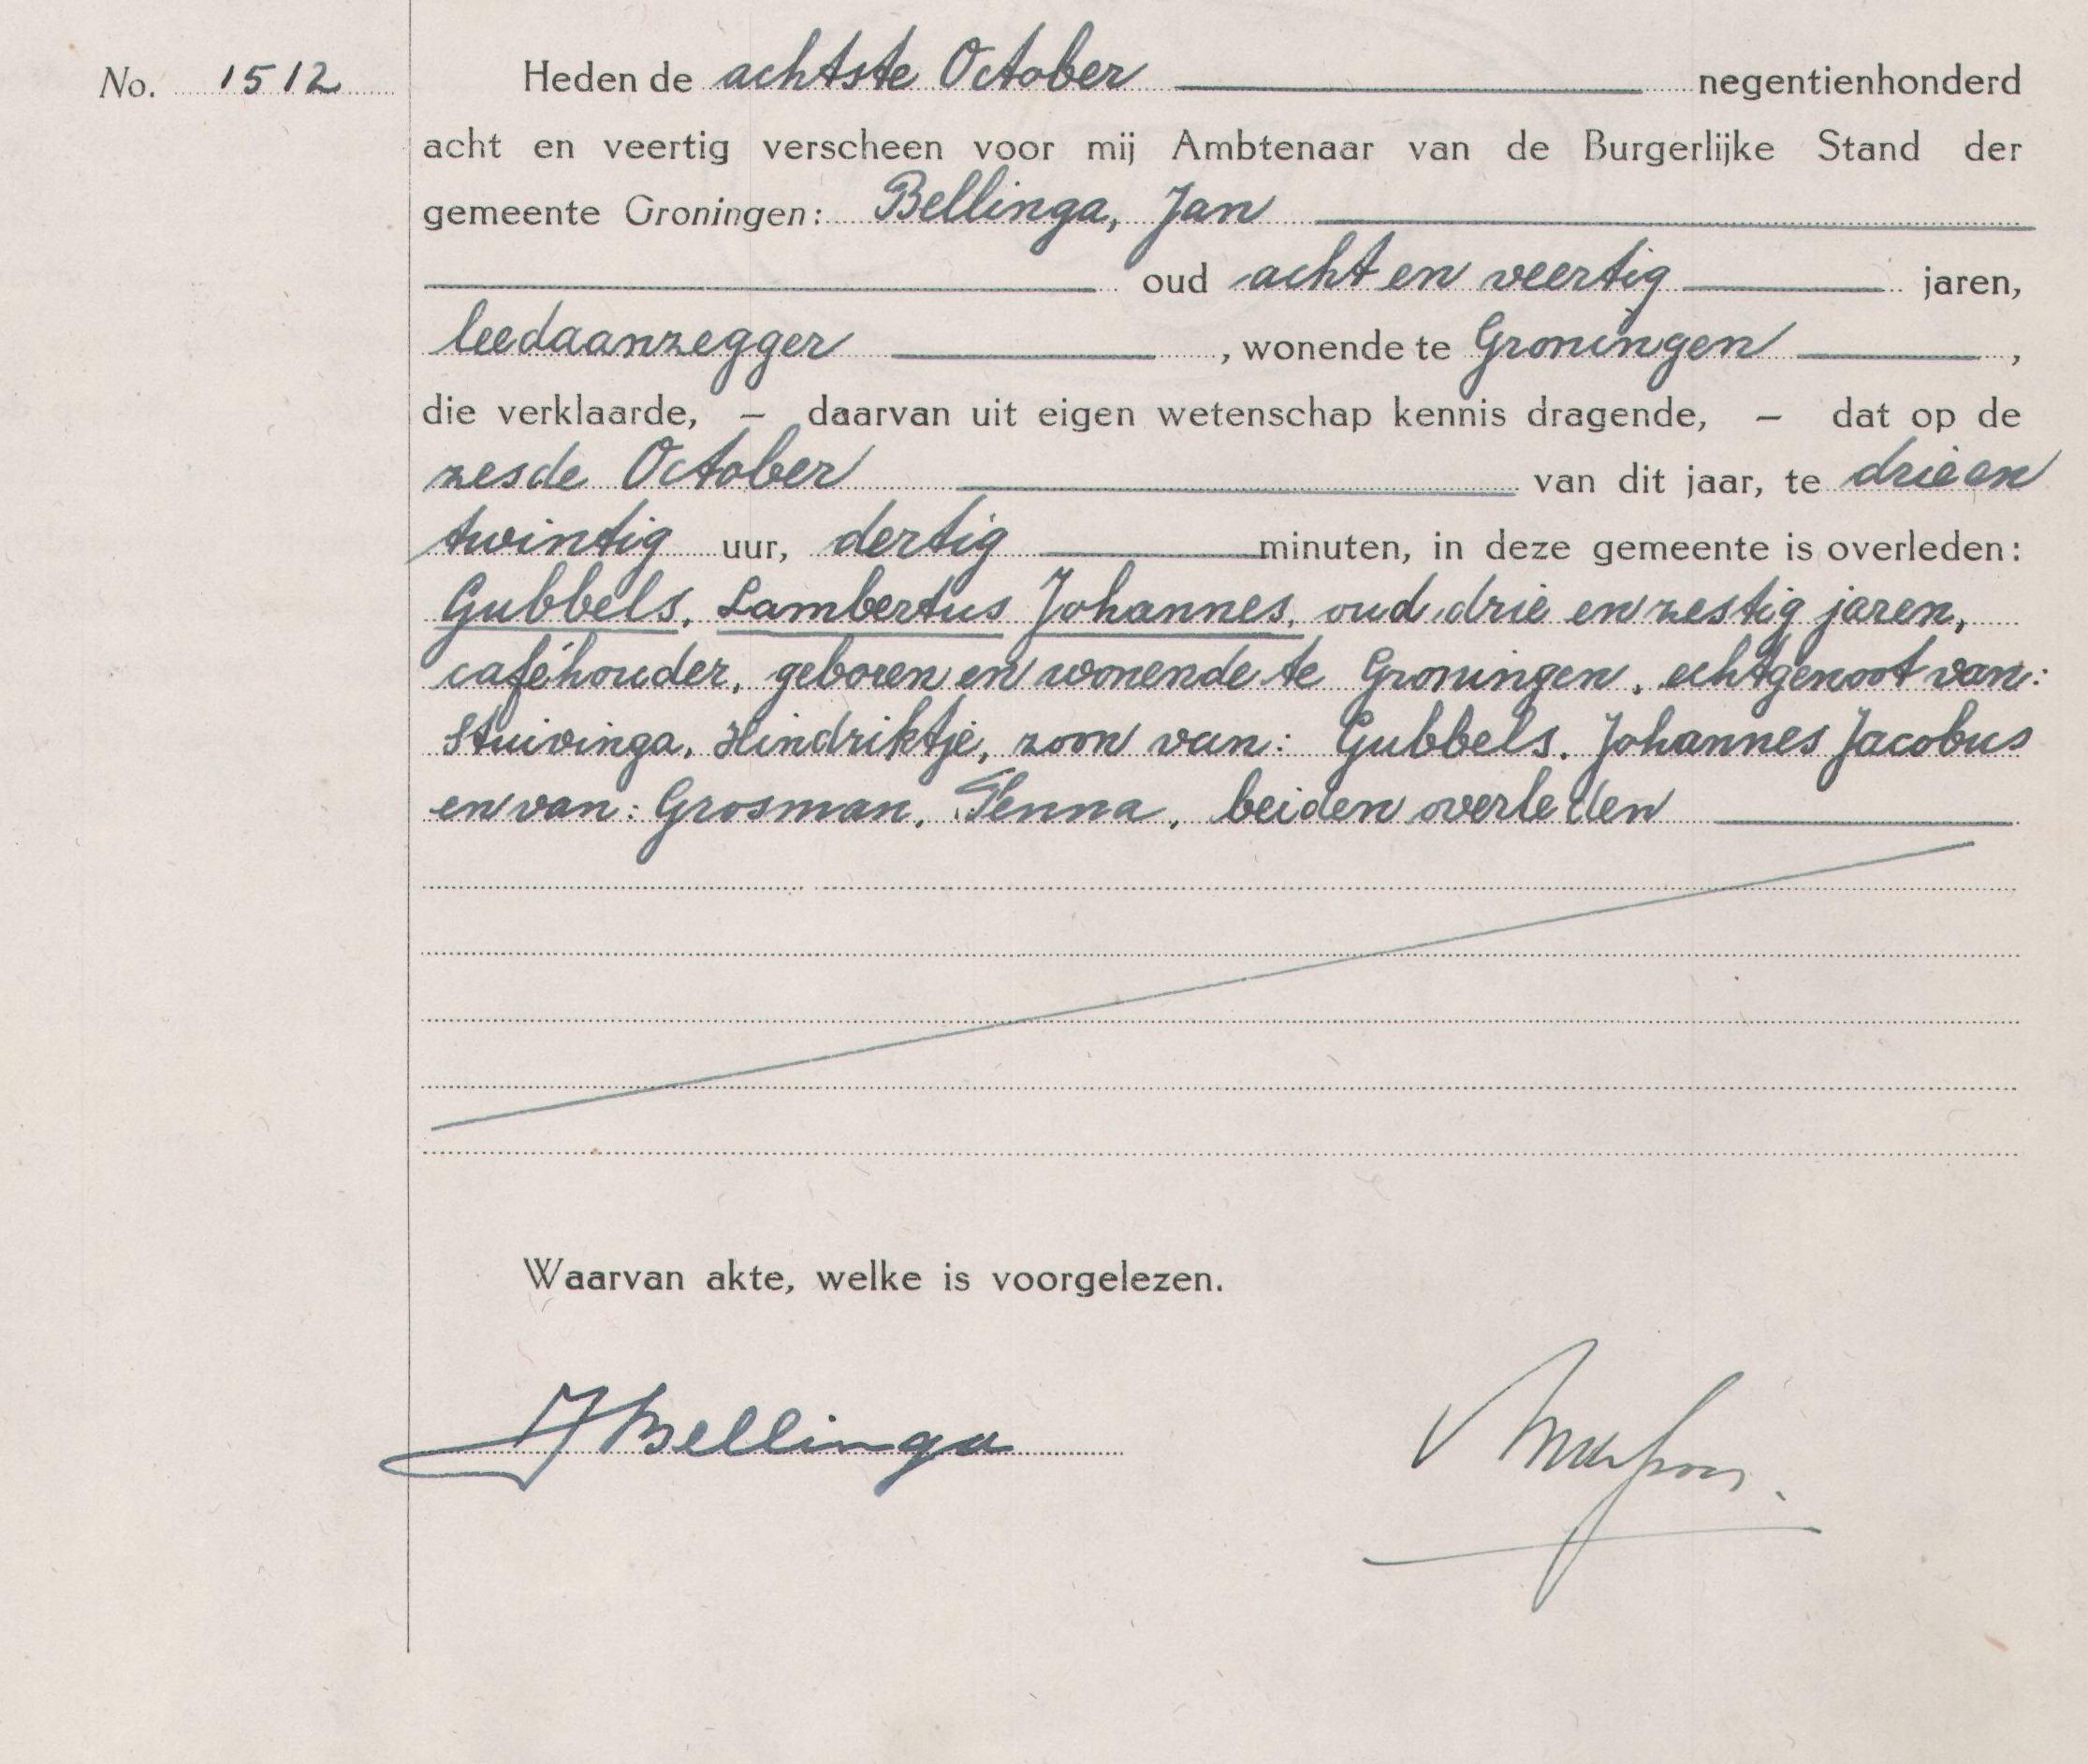 No. 1512
Heden de achtste October negentienhonderd
acht en veertig verscheen voor mij Ambtenaar van de Burgerlijke Stand der
gemeente Groningen: Bellinga, Jan
oud acht en veertig jaren,
leedaanzegger , wonende te Groningen ,
die verklaarde, — daarvan uit eigen wetenschap kennis dragende, — dat op de
zesde October van dit jaar, te drie en
twintig uur, dertig minuten, in deze gemeente is overleden:
Gubbels, Lambertus Johannes, oud drie en zestig jaren,
caféhouder, geboren en wonende te Groningen, echtgenoot van:
Stuivinga, Hindriktje, zoon van: Gubbels, Johannes Jacobus
en van: Grosman, Tenna, beiden overleden
Waarvan akte, welke is voorgelezen.
J Bellinga